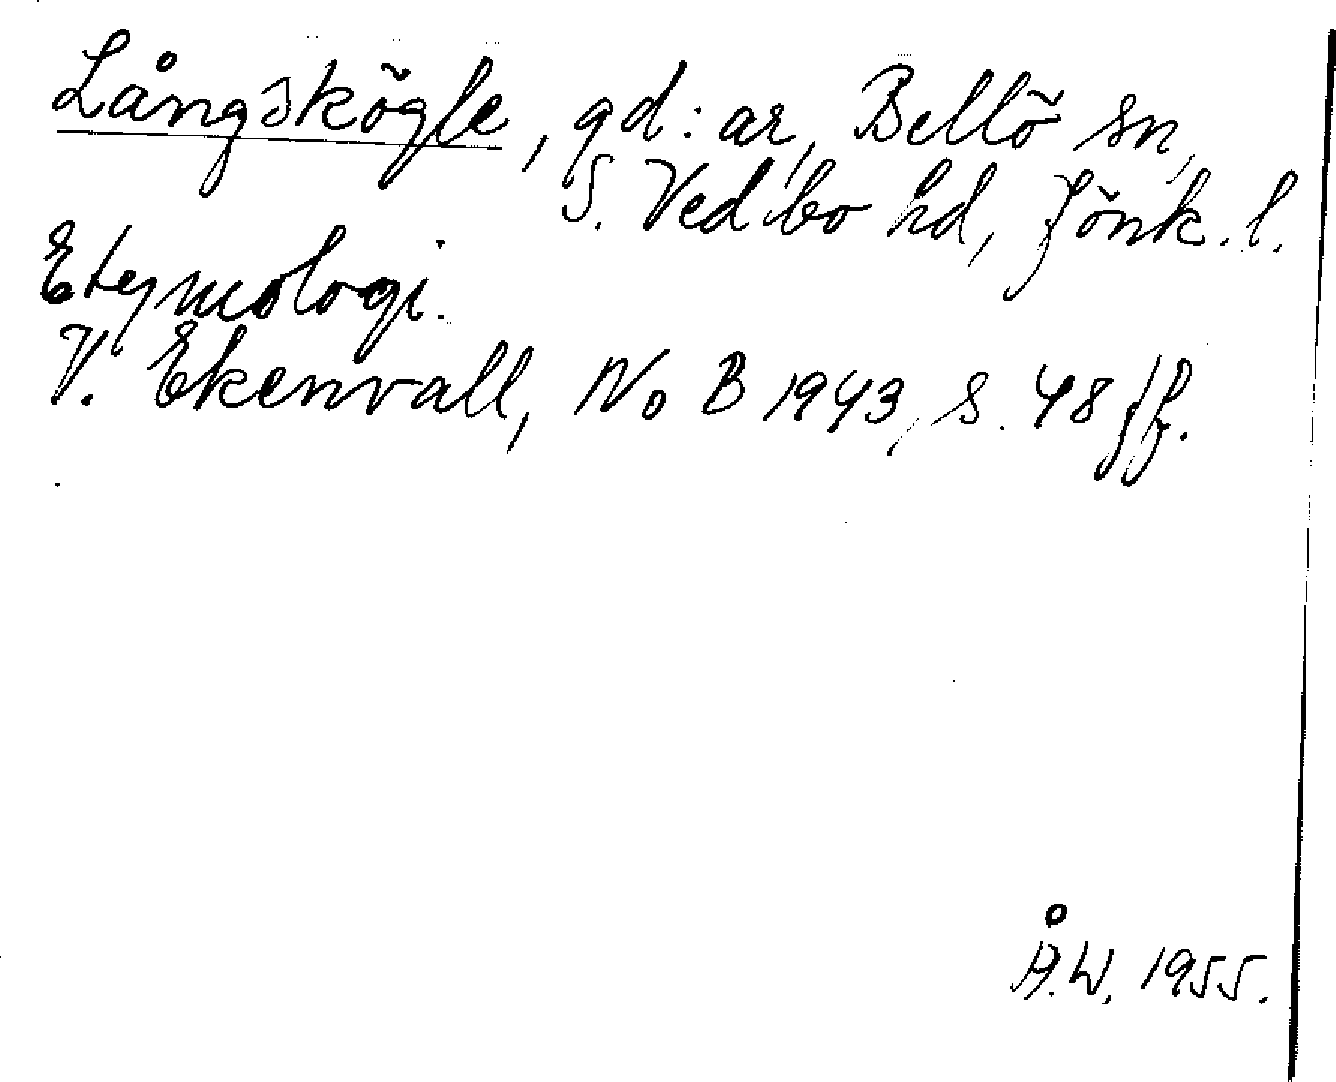 Långskögle, gd:ar, Bellö sn,
S. Vedbo hd, Jönk. l.
Etymologi.
V. Ekenvall, No B 1943, s. 48 ff.
Å.W. 1955.